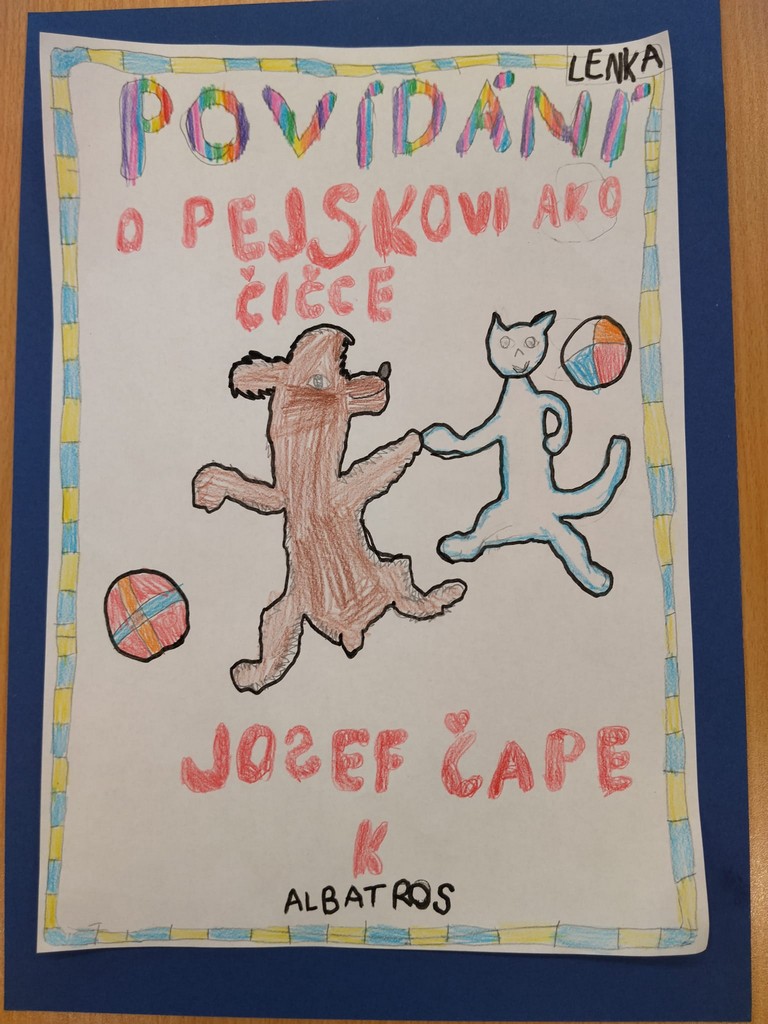 LENKA
POVÍDÁNÍ
O PEJSKOVI AKO
ČIČCE
JOSEF ČAPE
K
ALBATROS